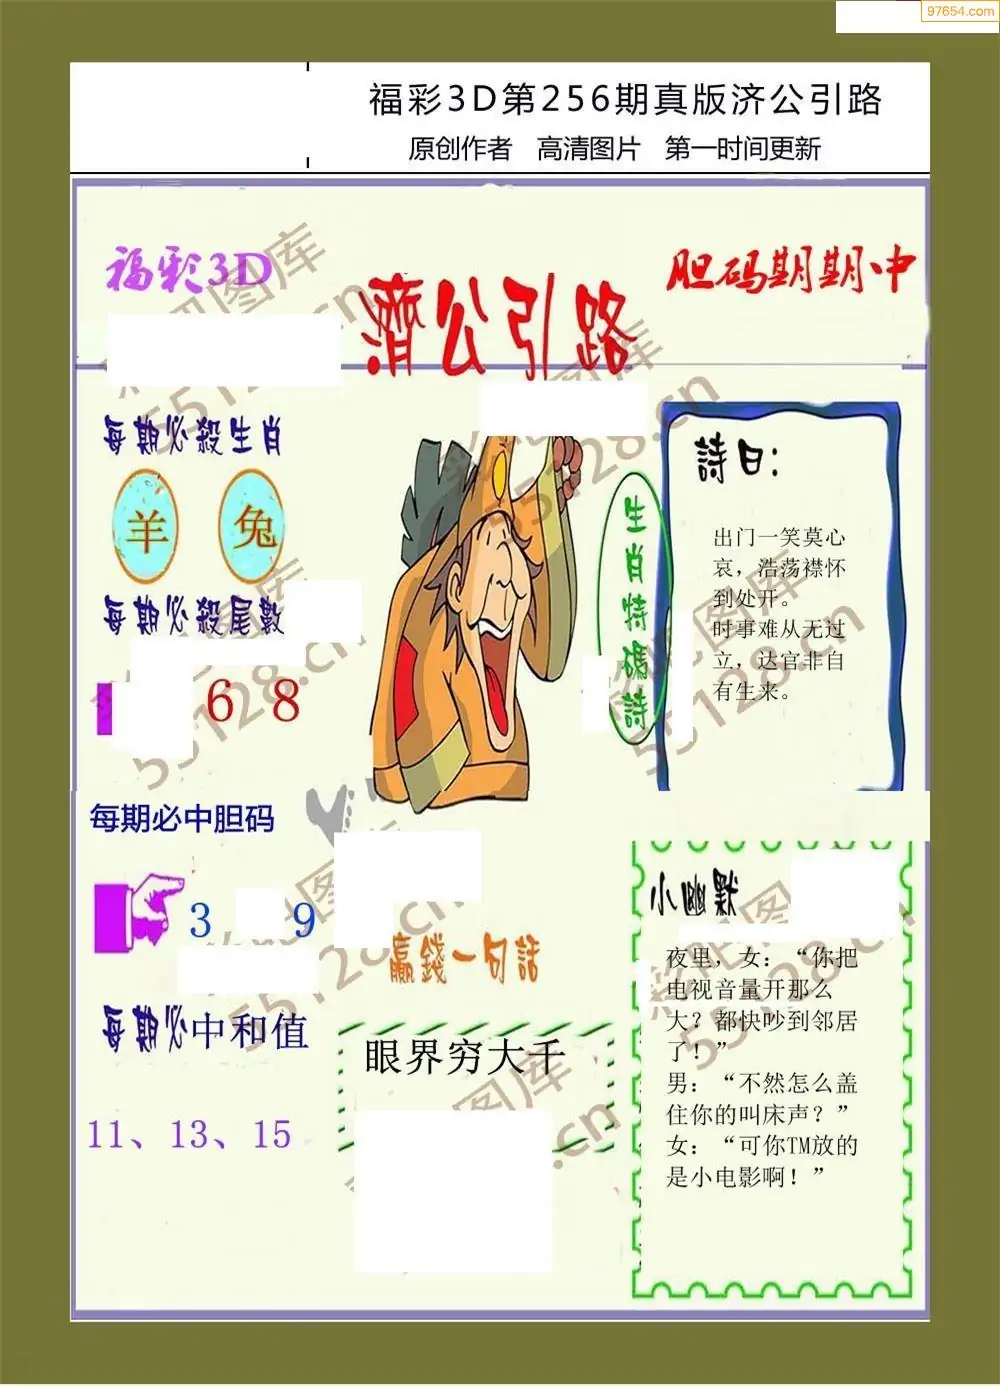 97654.com
福彩3D第256期真版济公引路
原创作者 高清图片 第一时间更新
福彩3D
濟公引路
胆码期期中
每期必殺生肖
羊 兔
每期必殺尾數
6 8
每期必中胆码
3 9
每期必中和值
11、13、15
生肖特碼詩
詩曰：
出门一笑莫心
哀，浩荡襟怀
到处开。
时事难从无过
立，达官非自
有生来。
赢錢一句話
眼界穷大千
小幽默
夜里，女：“你把
电视音量开那么
大？都快吵到邻居
了！”
男：“不然怎么盖
住你的叫床声？”
女：“可你TM放的
是小电影啊！”
彩吧图库
55128.cn